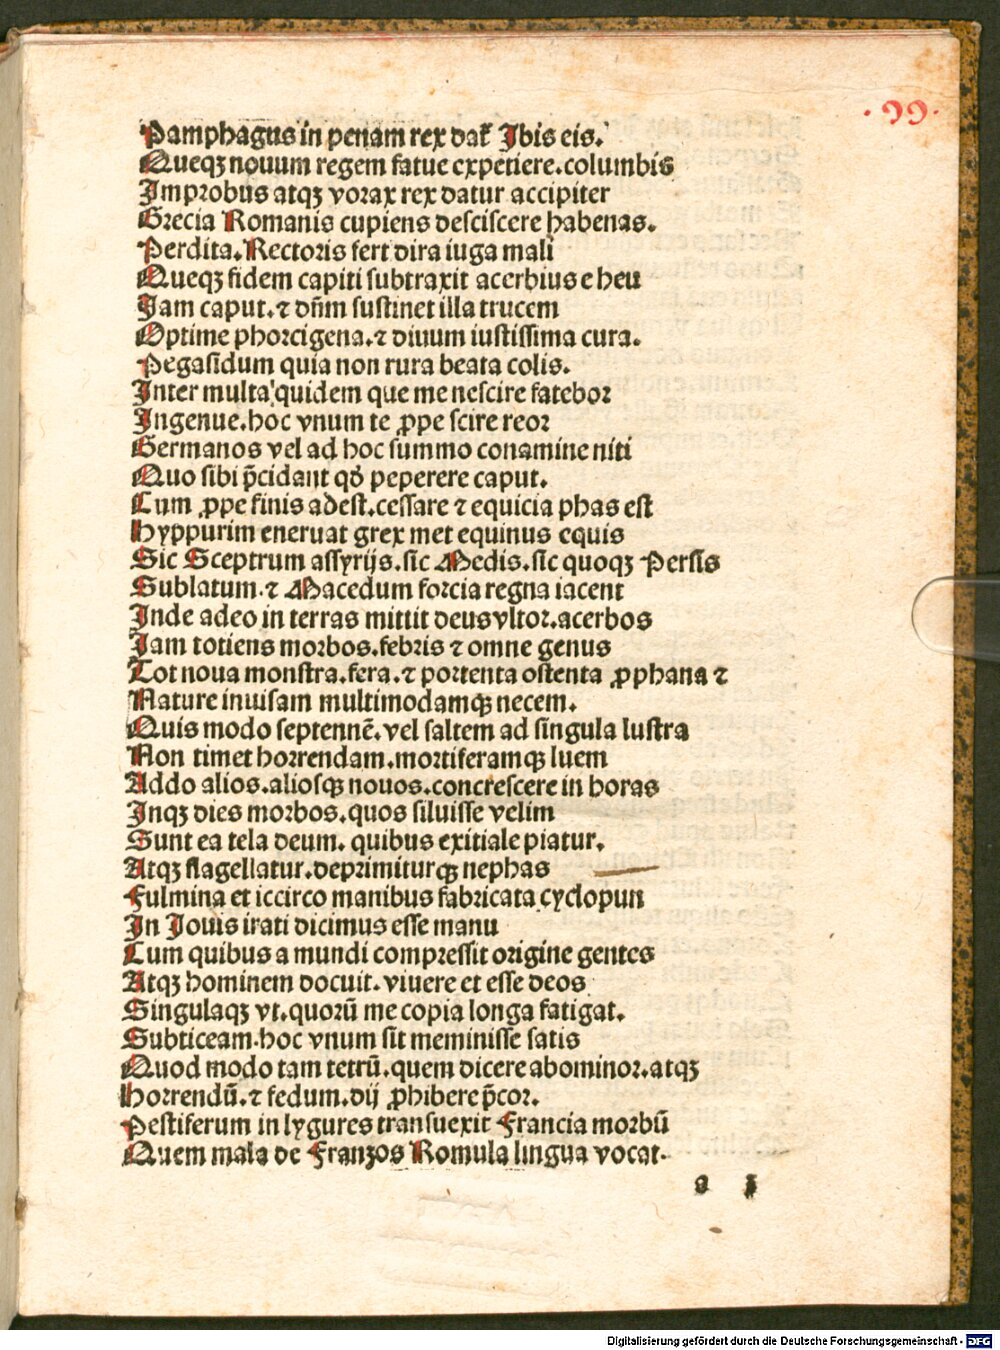 ·99·
Pamphagus in penam rex dat̃ Ibis eis.
Queqꝫ nouum regem fatue expetiere.columbis
Improbus atqꝫ vorax rex datur accipiter
Grecia Romanis cupiens desciscere habenas.
Perdita.Rectoris fert dira iuga mali
Queqꝫ fidem capiti subtraxit acerbius e heu
Jam caput.⁊ dñm sustinet illa trucem
Optime phorcigena.⁊ diuum iustissima cura.
Pegasidum quia non rura beata colis.
Inter multa quidem que me nescire fatebor
Ingenue.hoc vnum te ꝓpe scire reor
Germanos vel ad hoc summo conamine niti
Quo sibi p̃cidant qď peperere caput.
Cum ꝓpe finis adest.cessare ⁊ equicia phas est
Hyppurim eneruat grex met equinus equis
Sic Sceptrum assyrijs.sic Medis.sic quoqꝫ Persis
Sublatum.⁊ Macedum forcia regna iacent
Inde adeo in terras mittit deus vltor.acerbos
Jam totiens morbos.febris ⁊ omne genus
Tot noua monstra.fera.⁊ portenta ostenta ꝓphana ⁊
Nature inuisam multimodamqꝫ necem.
Quis modo septennẽ.vel saltem ad singula lustra
Non timet horrendam.mortiferamqꝫ luem
Addo alios.aliosqꝫ nouos.concrescere in horas
Inqꝫ dies morbos.quos siluisse velim
Sunt ea tela deum. quibus exitiale piatur.
Atqꝫ flagellatur.deprimiturqꝫ nephas
Fulmina et iccirco manibus fabricata cyclopun
In Jouis irati dicimus esse manu
Cum quibus a mundi compressit origine gentes
Atqꝫ hominem docuit.viuere et esse deos
Singulaqꝫ vt.quorū me copia longa fatigat.
Subticeam.hoc vnum sit meminisse satis
Quod modo tam tetrū.quem dicere abominor.atqꝫ
Horrendū.⁊ fedum.dij ꝓhibere p̃cor.
Pestiferum in lygures transuexit Francia morbū
Quem mala de Franzos Romula lingua vocat.
a 3
Digitalisierung gefördert durch die Deutsche Forschungsgemeinschaft - DFG